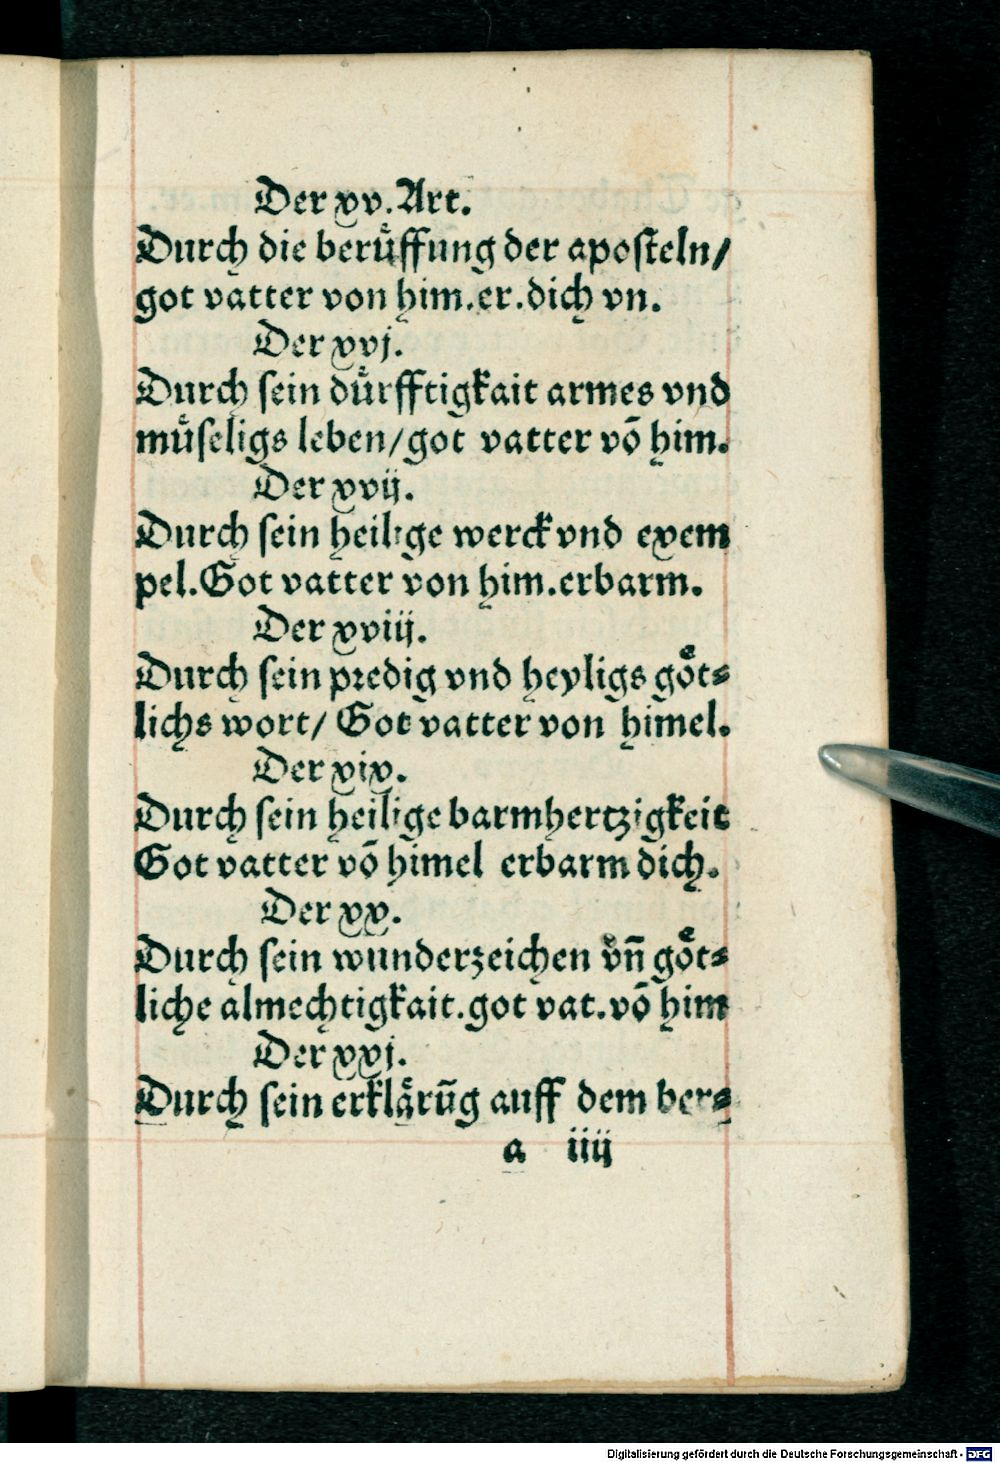 Der xv. Art.
Durch die beruͤffung der aposteln/
got vatter von him.er.dich vn.
Der xvj.
Durch sein duͤrfftigkait armes vnd
muͤseligs leben/got vatter vō him.
Der xvij.
Durch sein heilige werck vnd exem
pel.Got vatter von him.erbarm.
Der xviij.
Durch sein predig vnd heyligs goͤt⸗
lichs wort/ Got vatter von himel.
Der xix.
Durch sein heilige barmhertzigkeit
Got vatter vō himel erbarm dich.
Der xx.
Durch sein wunderzeichen vñ goͤt⸗
liche almechtigkait.got vat.vō him
Der xxj.
Durch sein erklaͤrūg auff dem ber⸗
a iiij
Digitalisierung gefördert durch die Deutsche Forschungsgemeinschaft - DFG